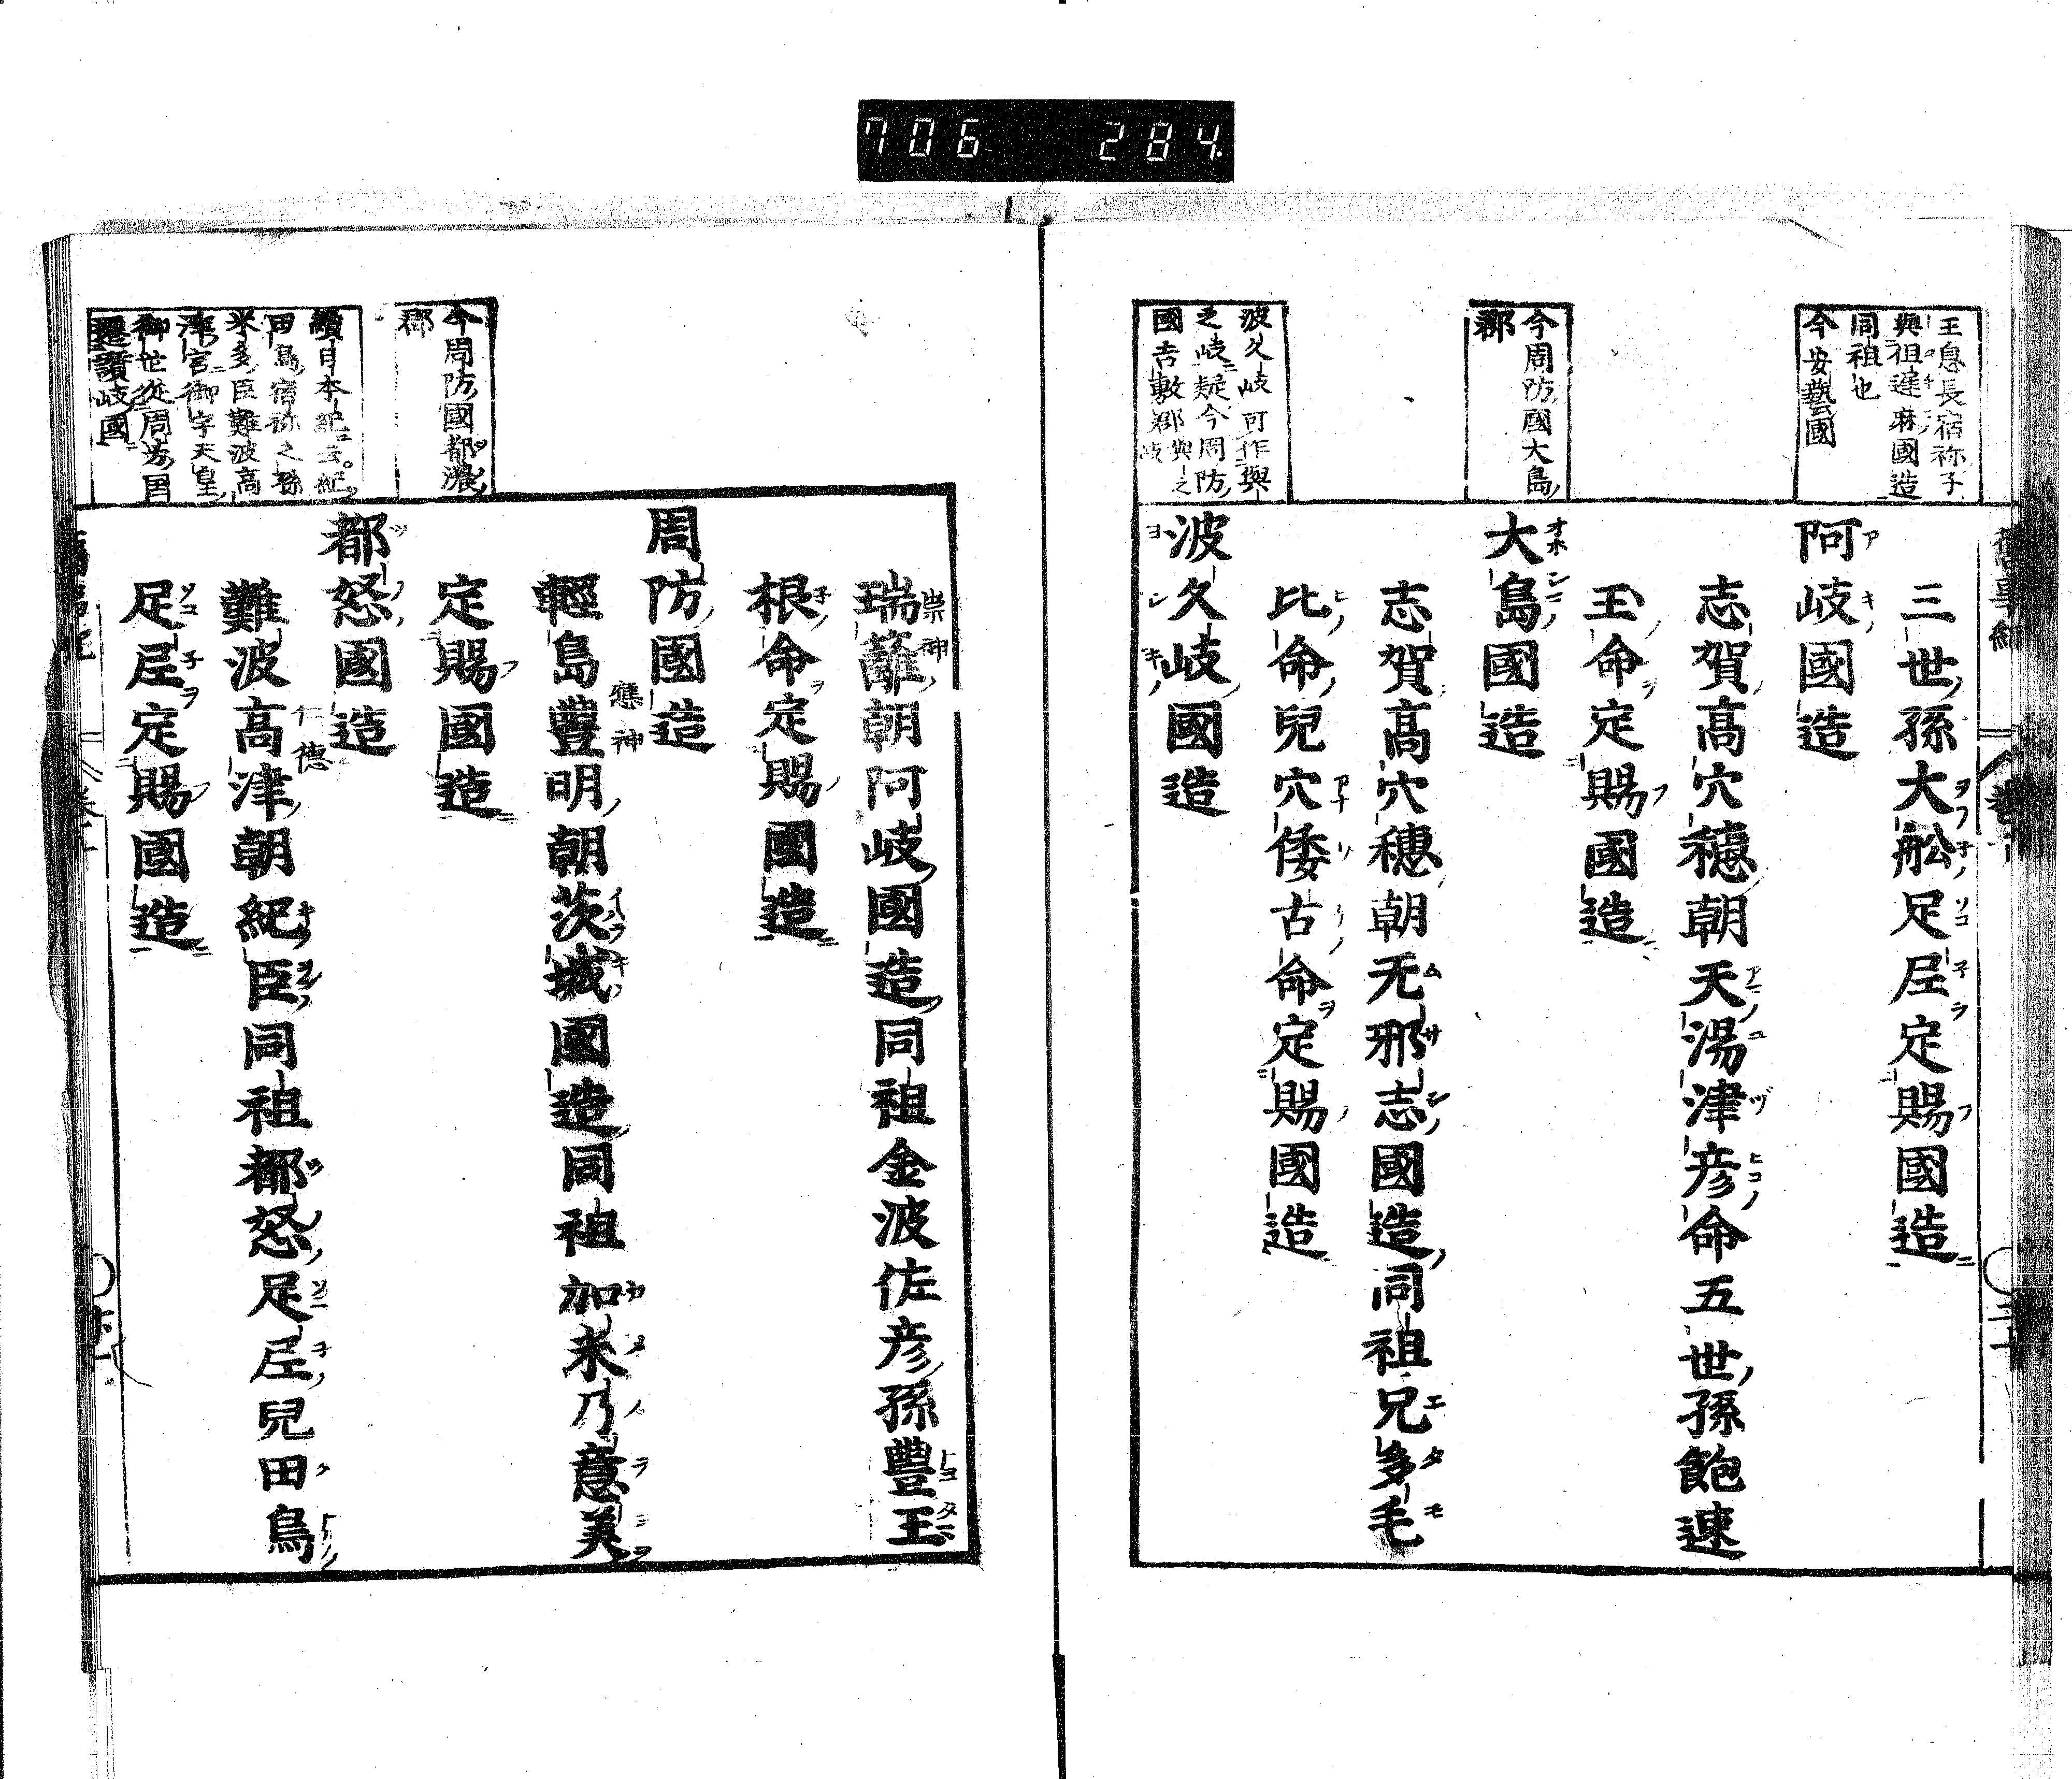 706 284
王息長宿祢子
與祖遅麻國造
同祖也
今安藝國
今周防國大島
郡
波久岐可作與
之岐疑今周防
國吉敷郡與之
岐
三世孫大舩足尼定賜國造
阿岐國造
志賀髙穴穂朝天湯津彦命五世孫飽速
玉命定賜國造
大島國造
志賀髙穴穂朝无邪志國造同祖兄多毛
比命兒穴倭古命定賜國造
波久岐國造
今周防國都濃
郡
續日本紀云紀
田鳥宿祢之孫
米多臣難波高
津宮御宇天皇
御世從周芳國
遷讃岐國
瑞籬朝阿岐國造同祖金波佐彦孫豐玉
崇神
根命定賜國造
周防國造
輕島豐明朝茨城國造同祖加米乃意美
應神
定賜國造
都怒國造
難波高津朝紀臣同祖都怒足尼兒田鳥
仁德
足尼定賜國造